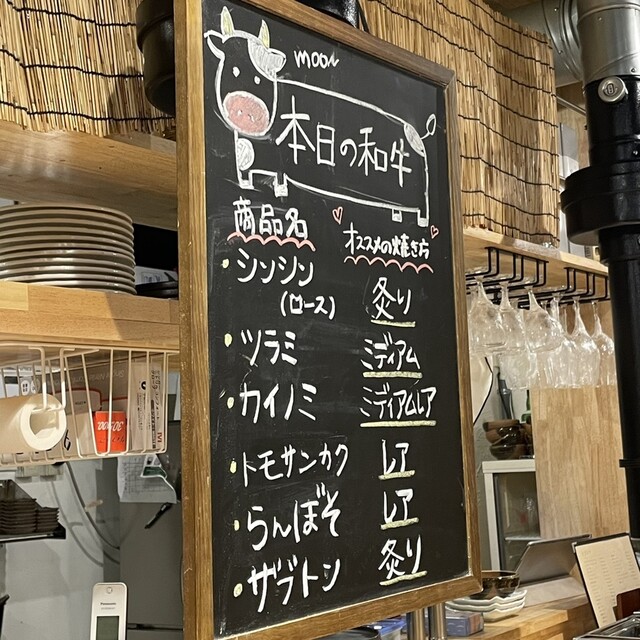 moo~
本日の和牛
商品名 オススメの焼き方
・シンシン(ロース) 炙り
・ツラミ ミディアム
・カイノミ ミディアムレア
・トモサンカク レア
・らんぼそ レア
・ザブトン 炙り
Panasonic